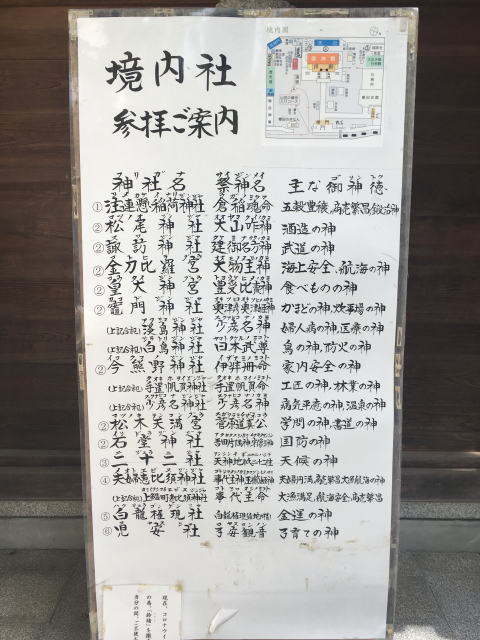 境内社
参拝ご案内
境内図
神社名 祭神名 主な御神徳
①注連懸稲荷神社 倉稲魂命 五穀豊穣、商売繁昌、鍛冶神
②松尾神社 大山咋神 酒造の神
②諏訪神社 建御名方神 武道の神
②金刀比羅宮 大物主神 海上安全、航海の神
②皇大神宮 豊受比売神 食べものの神
②竈門神社 奥津彦神 奥津姫神 かまどの神、炊事場の神
(上記合祀)淡島神社 少彦名神 婦人病の神、医療の神
(上記合祀)白鳥神社 日本武尊 鳥の神、防火の神
②今熊野神社 伊弉冊命 家内安全の神
(上記合祀)手置帆負神社 手置帆負命 工匠の神、林業の神
(上記合祀)少彦名神社 少彦名神 病気平癒の神、温泉の神
②松木天満宮 菅原道真公 学問の神、書道の神
②石堂神社 国防の神
③二十二社 天神地祇二十二社 天候の神
④夫婦恵比須神社 事代主神 夫婦円満、商売繁昌、大漁航海の神
(上記合祀) 事代主命 大漁満足、航海安全、商売繁昌
⑤白龍権現社 金運の神
⑥児安社 子安観音 子育ての神
現在、コロナウイ
の為、「鈴緒」を撤